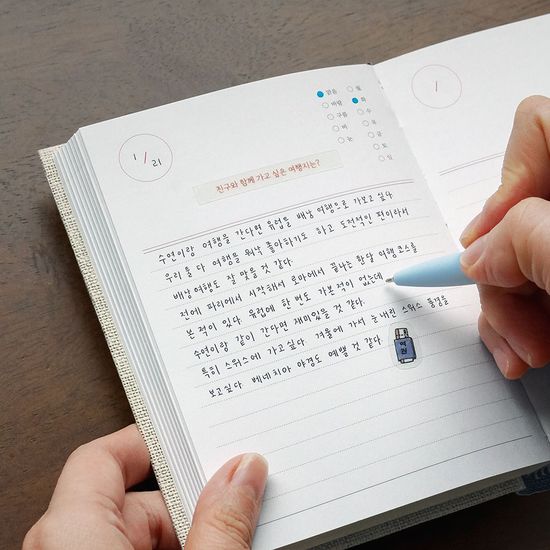 1/21
맑음
바람
구름
비
눈
월
화
수
목
금
토
일
친구와 함께 가고 싶은 여행지는?
수연이랑 여행을 간다면 유럽을 배낭 여행으로 가보고 싶다
우리 둘 다 여행을 워낙 좋아하기도 하고 도전적인 편이라서
배낭여행도 잘 맞을 것 같다.
전에 파리에서 시작해서 로마에서 끝나는 한달 여행 코스를
본 적이 있다. 유럽에 한 번도 가본적이 없는데
수연이랑 같이 간다면 재미있을 것 같다.
특히 스위스에 가고싶다. 겨울에 가서 눈 내린 스위스 풍경을
보고싶다. 베네치아 야경도 예쁠 것 같다.
여권
/